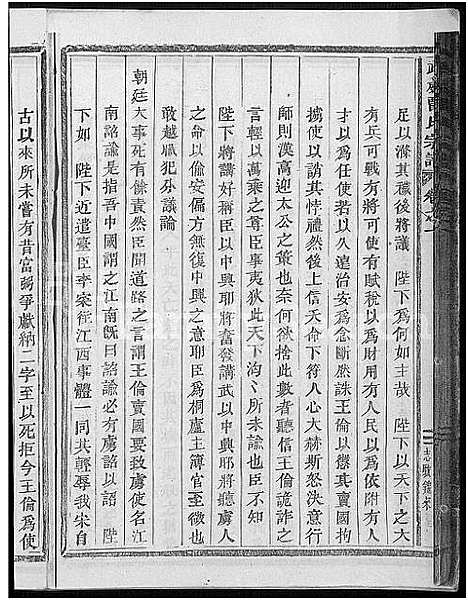 足以滌其穢後將議　陛下爲何如主哉　陛下以天下之大
有兵可戰有將可使有賦稅以爲財用有人民以爲依附有人
才以爲任使若以久遠治安爲念斷然誅王倫以攄其賣國拘
擄使以請其悖禮然後上信天命下符人心大赫斯怒決意行
師則漢高迎太公之策也奈何欲捨此數者聽信王倫詭詐之
言輕以萬乘之尊臣事夷狄此天下洶〻所未諭也臣不知
陛下將講好稱臣以中興耶將奮發講武以中興耶將聽虜人
之命以偷安偏方無復中興之意耶臣爲桐廬主簿官至微也
敢越職犯分議論
朝廷大事死有餘責然臣聞道路之言謂王倫賣國要致虜使名江
南詔諭是指吾中國謂之江南既曰詔諭必有虜詔以詔　陛
下如　陛下近遣臺臣李寀往江西事體一同共輕辱我宋自
古以來所未嘗有昔富弼爭獻納二字至以死拒今王倫爲使